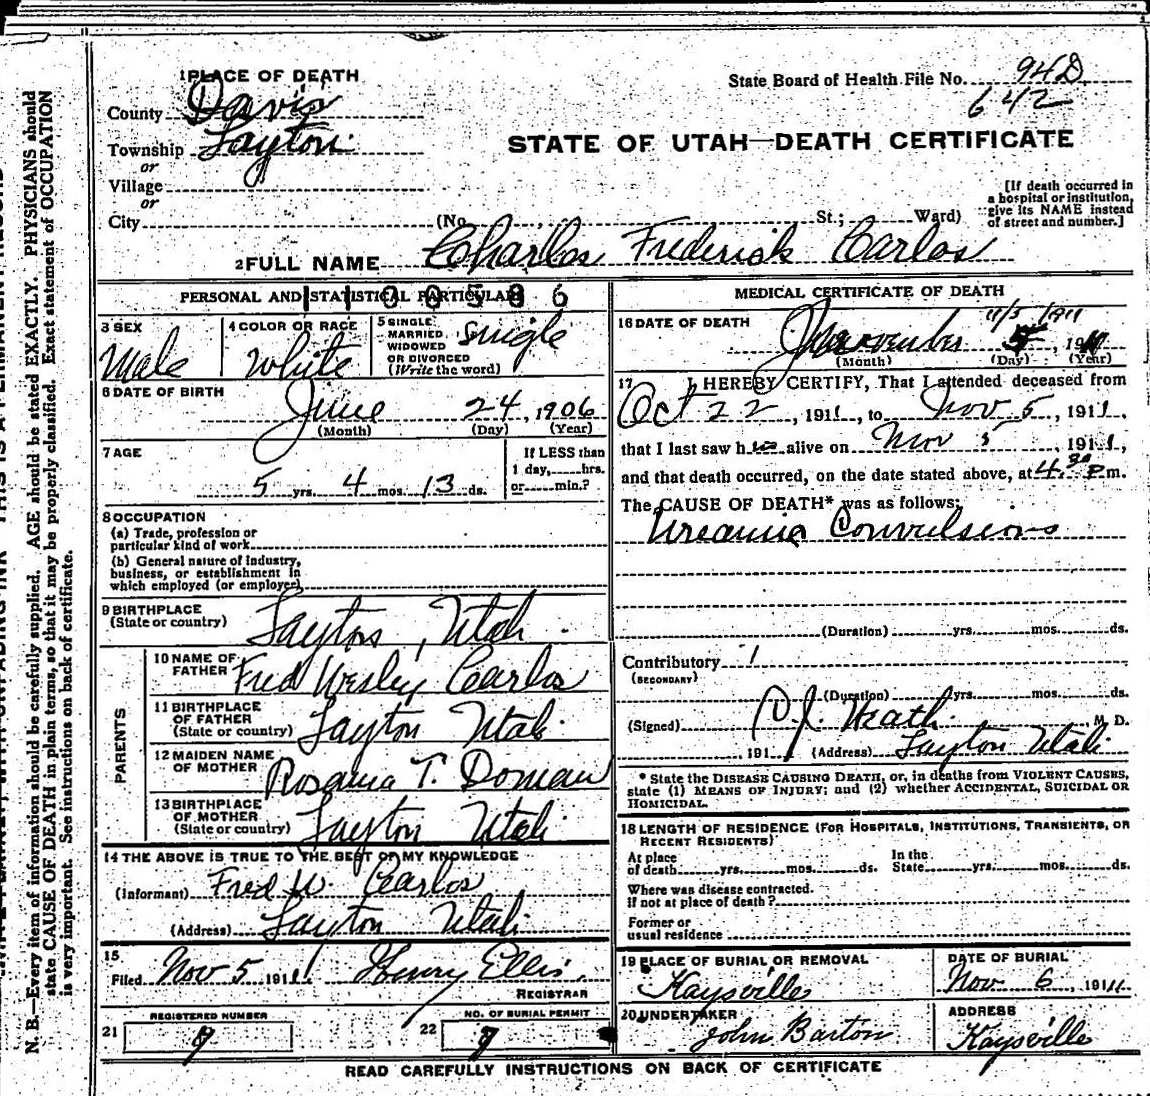 1 PLACE OF DEATH
County Davis
Township Layton
or
Village
or
City (No. , St.; Ward)
State Board of Health File No. 94D
642
STATE OF UTAH—DEATH CERTIFICATE
[If death occurred in
a hospital or institution,
give its NAME instead
of street and number.]
2 FULL NAME Charles Frederick Carlos
PERSONAL AND STATISTICAL PARTICULARS
3 SEX
Male
4 COLOR OR RACE
White
5 SINGLE
MARRIED
WIDOWED
OR DIVORCED
(Write the word)
Single
6 DATE OF BIRTH
June 24, 1906
(Month) (Day) (Year)
7 AGE
5 yrs. 4 mos. 13 ds.
If LESS than
1 day, hrs.
or min.?
8 OCCUPATION
(a) Trade, profession or
particular kind of work
(b) General nature of industry,
business, or establishment in
which employed (or employer)
9 BIRTHPLACE
(State or country)
Layton, Utah.
PARENTS
10 NAME OF
FATHER
Fred Wesley Carlos
11 BIRTHPLACE
OF FATHER
(State or country)
Layton Utah
12 MAIDEN NAME
OF MOTHER
Rosania T. Doman
13 BIRTHPLACE
OF MOTHER
(State or country)
Layton Utah
14 THE ABOVE IS TRUE TO THE BEST OF MY KNOWLEDGE
(Informant) Fred W Carlos
(Address) Layton Utah
15
Filed Nov 5 1911 Henry Ellis.
REGISTRAR
REGISTERED NUMBER
21 9
NO. OF BURIAL PERMIT
22 9
MEDICAL CERTIFICATE OF DEATH
11/5/1911
16 DATE OF DEATH
November 5, 191
(Month) (Day) (Year)
17 I HEREBY CERTIFY, That I attended deceased from
Oct 22, 1911, to Nov 5, 1911,
that I last saw him alive on Nov 5, 1911,
and that death occurred, on the date stated above, at 4.30 P m.
The CAUSE OF DEATH* was as follows:
Ureamia Convulsions
(Duration) yrs. mos. ds.
Contributory
(SECONDARY)
(Duration) yrs. mos. ds.
(Signed) Heath, M D.
, 191 (Address) Layton Utah
* State the DISEASE CAUSING DEATH, or, in deaths from VIOLENT CAUSES,
state (1) MEANS OF INJURY; and (2) whether ACCIDENTAL, SUICIDAL OR
HOMICIDAL.
18 LENGTH OF RESIDENCE (FOR HOSPITALS, INSTITUTIONS, TRANSIENTS, OR
RECENT RESIDENTS)
At place
of death yrs. mos. ds.
In the
State yrs. mos. ds.
Where was disease contracted.
if not at place of death?
Former or
usual residence
19 PLACE OF BURIAL OR REMOVAL
Kaysville
DATE OF BURIAL
Nov. 6, 1911
20 UNDERTAKER
John Barton
ADDRESS
Kaysville
READ CAREFULLY INSTRUCTIONS ON BACK OF CERTIFICATE
N. B.—Every item of information should be carefully supplied. AGE should be stated EXACTLY. PHYSICIANS should
state CAUSE OF DEATH in plain terms, so that it may be properly classified. Exact statement of OCCUPATION
is very important. See instructions on back of certificate.